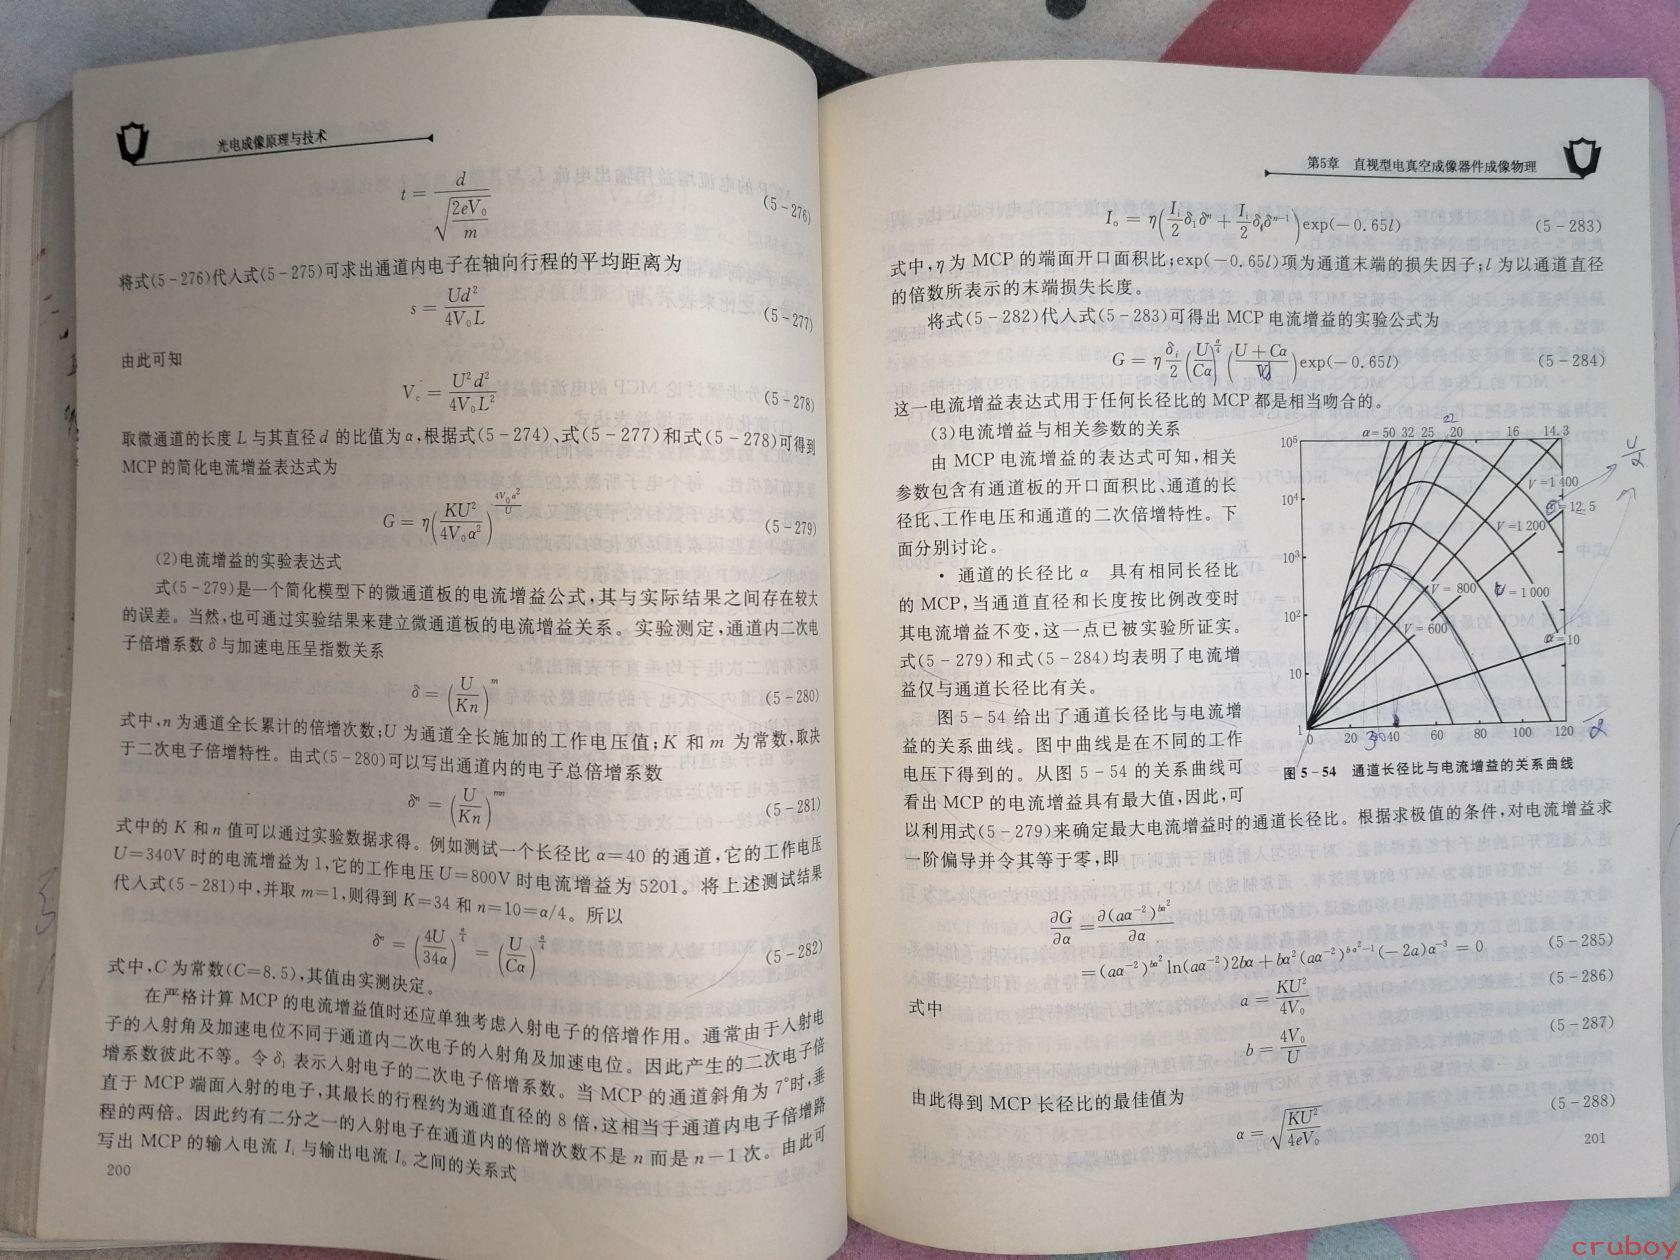 光电成像原理与技术
t = d / √(2eV₀/m) (5-276)
将式(5-276)代入式(5-275)可求出通道内电子在轴向行程的平均距离为
s = Ud² / 4V₀L (5-277)
由此可知
V꜀ = U²d² / 4V₀L² (5-278)
取微通道的长度 L 与其直径 d 的比值为 α,根据式(5-274)、式(5-277)和式(5-278)可得到
MCP 的简化电流增益表达式为
G = η(KU² / 4V₀α²)^(4V₀α²/U) (5-279)
(2)电流增益的实验表达式
式(5-279)是一个简化模型下的微通道板的电流增益公式,其与实际结果之间存在较大
的误差。当然,也可通过实验结果来建立微通道板的电流增益关系。实验测定,通道内二次电
子倍增系数 δ 与加速电压呈指数关系
δ = (U/Kn)^m (5-280)
式中,n 为通道全长累计的倍增次数;U 为通道全长施加的工作电压值;K 和 m 为常数,取决
于二次电子倍增特性。由式(5-280)可以写出通道内的电子总倍增系数
δⁿ = (U/Kn)^mn (5-281)
式中的 K 和 n 值可以通过实验数据求得。例如测试一个长径比 α=40 的通道,它的工作电压
U=340V 时的电流增益为 1,它的工作电压 U=800V 时电流增益为 5201。将上述测试结果
代人式(5-281)中,并取 m=1,则得到 K=34 和 n=10=α/4。所以
δⁿ = (4U/34α)^(α/4) = (U/Cα)^(α/4) (5-282)
式中,C 为常数(C=8.5),其值由实测决定。
在严格计算 MCP 的电流增益值时还应单独考虑入射电子的倍增作用。通常由于入射电
子的入射角及加速电位不同于通道内二次电子的入射角及加速电位。因此产生的二次电子倍
增系数彼此不等。令 δ₁ 表示入射电子的二次电子倍增系数。当 MCP 的通道斜角为 7°时,垂
直于 MCP 端面入射的电子,其最长的行程约为通道直径的 8 倍,这相当于通道内电子倍增路
程的两倍。因此约有二分之一的入射电子在通道内的倍增次数不是 n 而是 n-1 次。由此可
写出 MCP 的输入电流 Iᵢ 与输出电流 Iₒ 之间的关系式
200
第5章 直视型电真空成像器件成像物理
Iₒ = η(Iᵢ/2 δᵢδⁿ + Iᵢ/2 δᵢδⁿ⁻¹)exp(-0.65l) (5-283)
式中,η 为 MCP 的端面开口面积比;exp(-0.65l)项为通道末端的损失因子;l 为以通道直径
的倍数所表示的末端损失长度。
将式(5-282)代入式(5-283)可得出 MCP 电流增益的实验公式为
G = η δᵢ/2 (U/Cα)^(α/4) (U+Cα / U)exp(-0.65l) (5-284)
这一电流增益表达式用于任何长径比的 MCP 都是相当吻合的。
(3)电流增益与相关参数的关系
由 MCP 电流增益的表达式可知,相关
参数包含有通道板的开口面积比、通道的长
径比、工作电压和通道的二次倍增特性。下
面分别讨论。
· 通道的长径比 α 具有相同长径比
的 MCP,当通道直径和长度按比例改变时
其电流增益不变,这一点已被实验所证实。
式(5-279)和式(5-284)均表明了电流增
益仅与通道长径比有关。
图 5-54 给出了通道长径比与电流增
益的关系曲线。图中曲线是在不同的工作
电压下得到的。从图 5-54 的关系曲线可
看出 MCP 的电流增益具有最大值,因此,可
22
α=50 32 25 20 16 14.3
10⁵
U/α
V=1 400
10⁴
12.5
V=1 200
10³
V=800
V=1 000
10²
V=600
α=10
10
1
0 20 30 40 60 80 100 120 α
图 5-54 通道长径比与电流增益的关系曲线
以利用式(5-279)来确定最大电流增益时的通道长径比。根据求极值的条件,对电流增益求
一阶偏导并令其等于零,即
∂G/∂α = ∂(aα⁻²)^(bα²) / ∂α
= (aα⁻²)^(bα²) ln(aα⁻²)2bα + bα²(aα⁻²)^(bα²-1)(-2a)α⁻³ = 0 (5-285)
式中 a = KU²/4V₀ (5-286)
b = 4V₀/U (5-287)
由此得到 MCP 长径比的最佳值为
α = √(KU²/4eV₀) (5-288)
201
cruboy